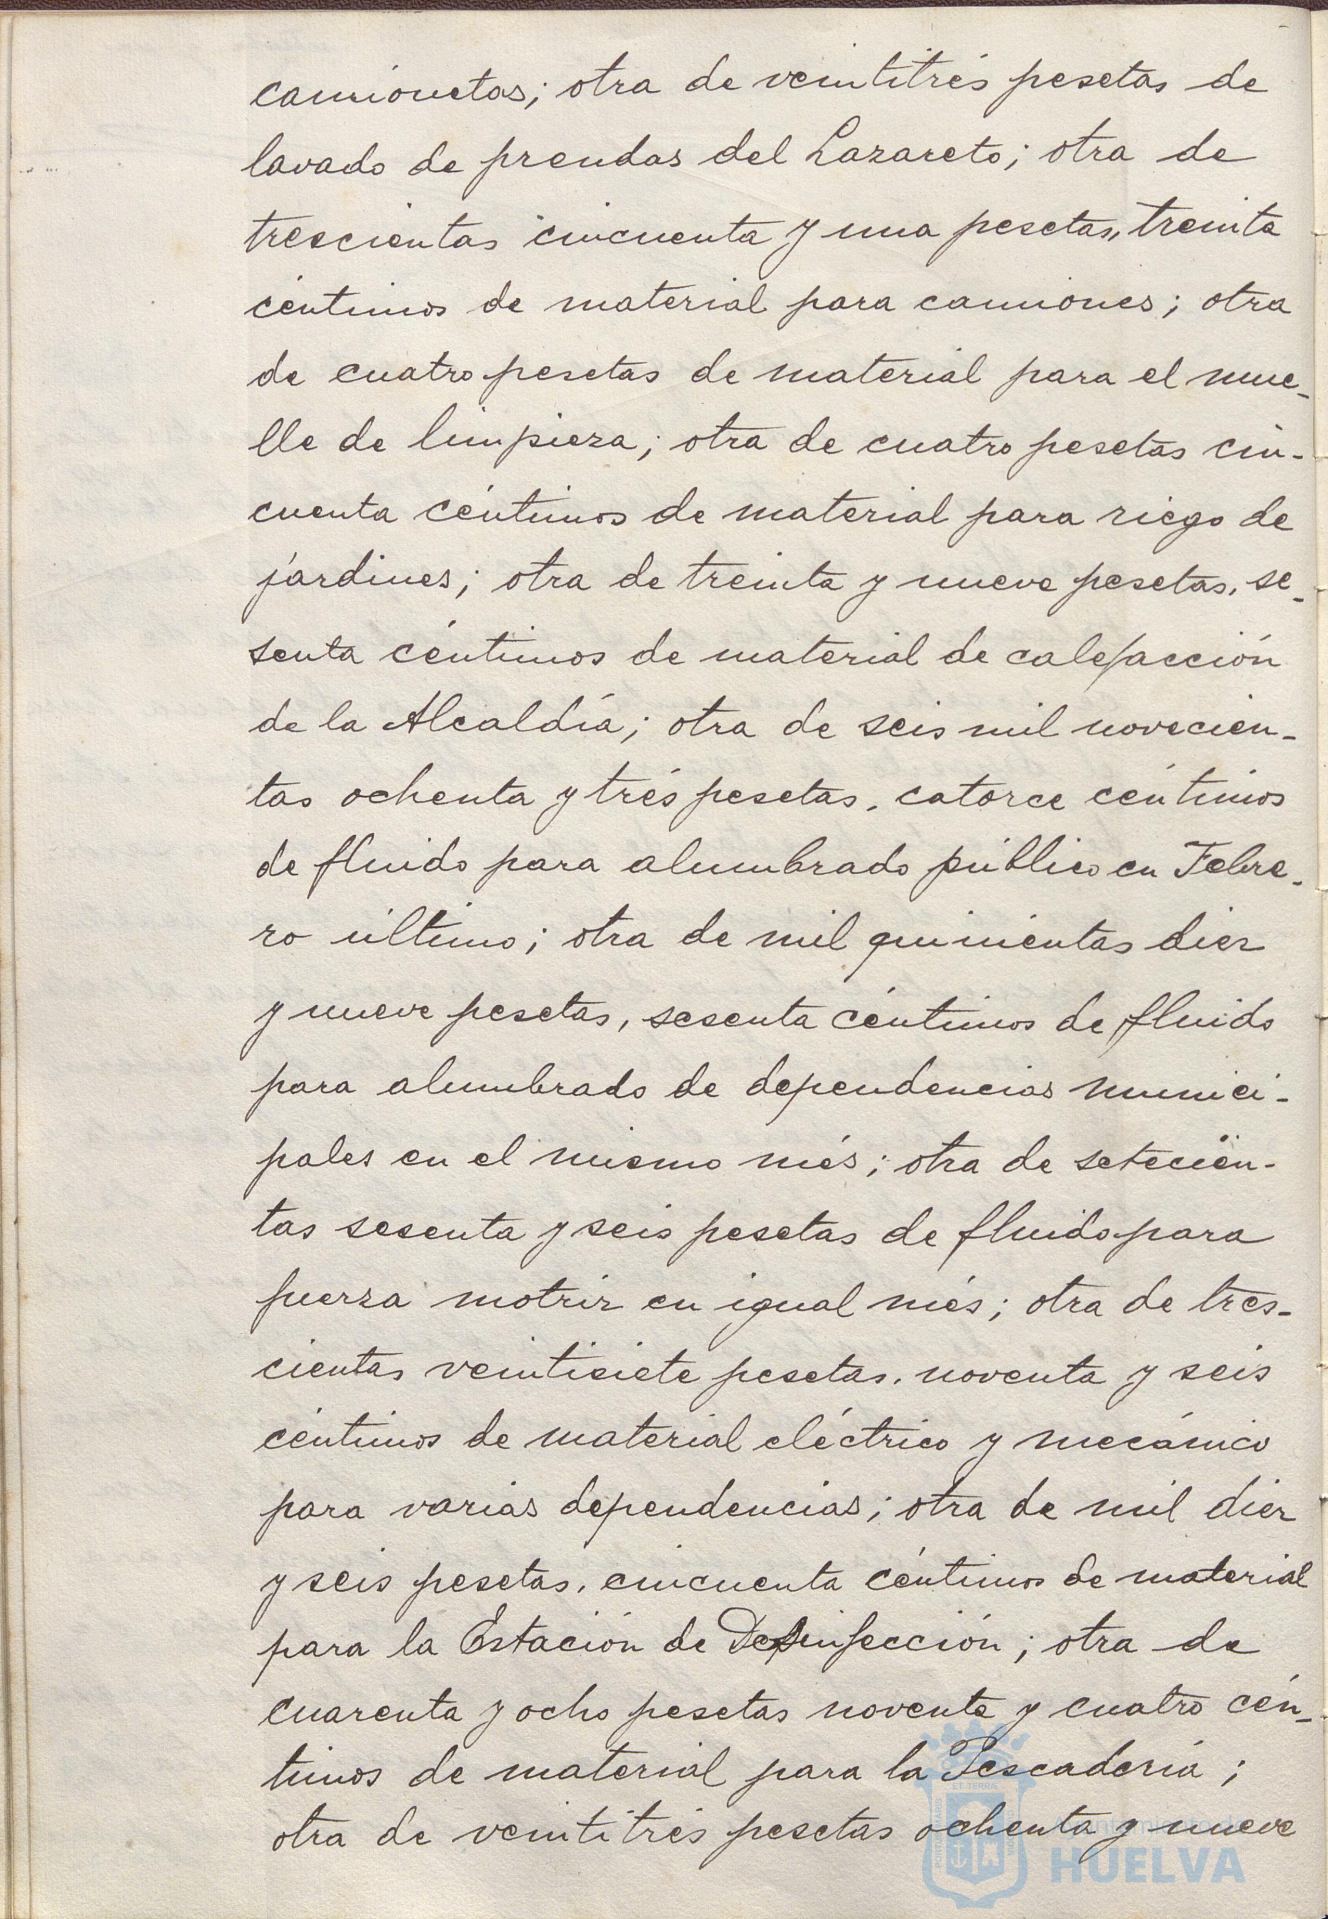 camionetas; otra de veintitrés pesetas de
lavado de prendas del Lazareto; otra de
trescientas cincuenta y una pesetas, treinta
céntimos de material para camiones; otra
de cuatro pesetas de material para el mue-
lle de limpieza; otra de cuatro pesetas cin-
cuenta céntimos de material para riego de
jardines; otra de treinta y nueve pesetas, se-
senta céntimos de material de calefacción
de la Alcaldía; otra de seis mil novecien-
tas ochenta y trés pesetas, catorce céntimos
de fluido para alumbrado público en Febre-
ro último; otra de mil quinientas diez
y nueve pesetas, sesenta céntimos de fluido
para alumbrado de dependencias munici-
pales en el mismo més; otra de setecien-
tas sesenta y seis pesetas de fluido para
fuerza motriz en igual més; otra de tres-
cientas veintisiete pesetas, noventa y seis
céntimos de material eléctrico y mecánico
para varias dependencias; otra de mil diez
y seis pesetas, cincuenta céntimos de material
para la Estación de Desinfección; otra de
cuarenta y ocho pesetas noventa y cuatro cén-
timos de material para la Pescadería;
otra de veintitrés pesetas ochenta y nueve
HUELVA